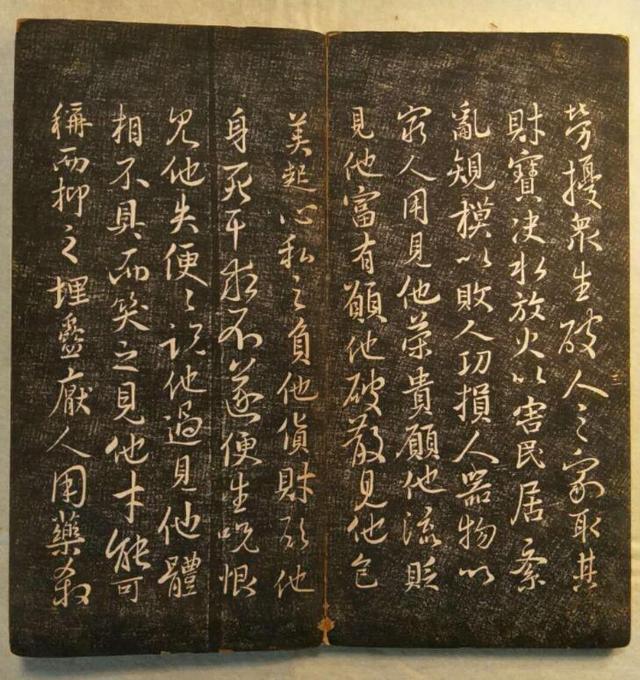 勞擾衆生破人之家取其
財寶決水放火以害民居紊
亂規摸以敗人功損人器物以
窮人用見他榮貴願他流貶
見他富有願他破散見他色
美起心私之負他貨財願他
身死干求不遂便生呪恨
見他失便〻說他過見他體
相不具而笑之見他才能可
稱而抑之埋蠱厭人用藥殺